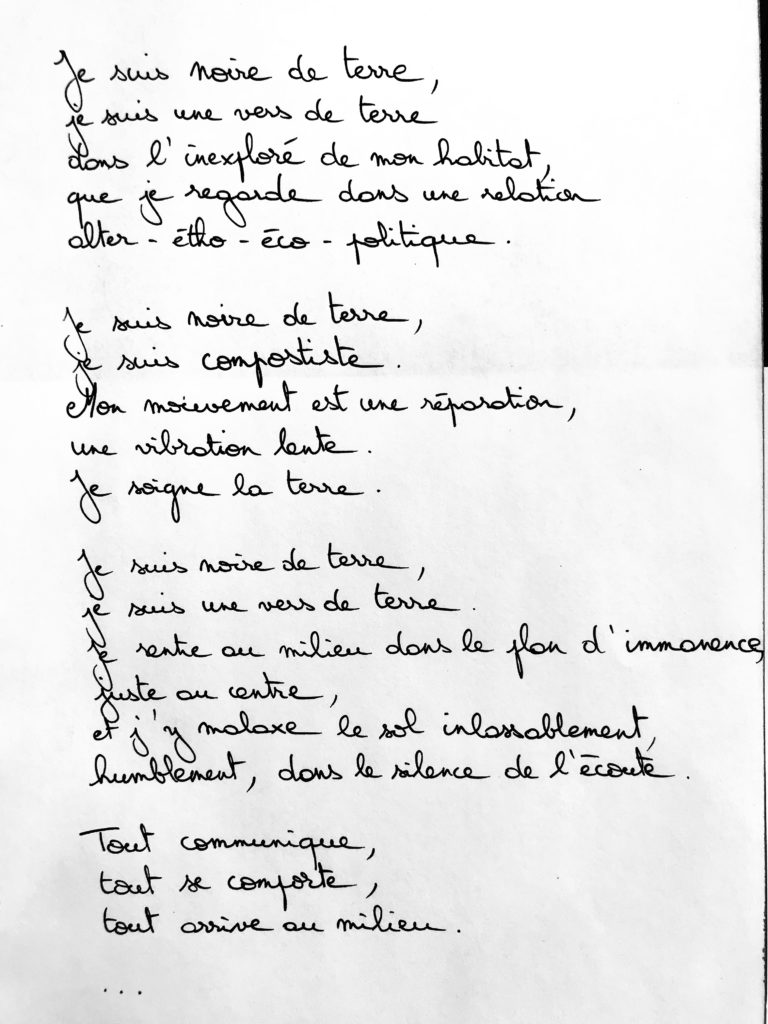 Je suis noire de terre,
je suis une vers de terre
dans l'inexploré de mon habitat,
que je regarde dans une relation
alter - étho - éco - politique.
Je suis noire de terre,
je suis compostiste.
Mon mouvement est une réparation,
une vibration lente.
Je soigne la terre.
Je suis noire de terre,
je suis une vers de terre.
Je rentre au milieu dans le plan d'immanence,
juste au centre,
et j'y malaxe le sol inlassablement,
humblement, dans le silence de l'écoute.
Tout communique,
tout se comporte,
tout arrive au milieu.
...